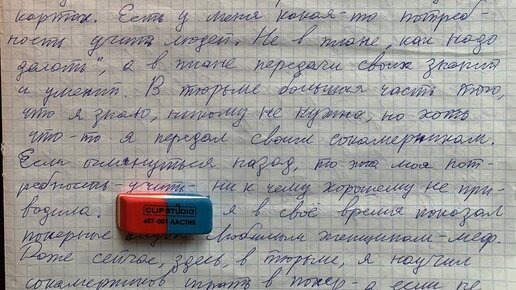 картах. Есть у меня какая-то потреб-
ность учить людей. Не в плане, как надо
делать", а в плане передачи своих знаний
и умений. В тюрьме большая часть того,
что я знаю, никому не нужна, но хоть
что-то я передал своим сокамерникам.
Если оглянуться назад, то эта моя пот-
ребность учить ни к чему хорошему не при-
водила. я в своё время показал
покерные любимым женщинам-меф.
Даже сейчас, здесь, в тюрьме, я научил
сокамерников играть в покер-а если не
CLIP STUDIO
607-001 ЛАСТИК